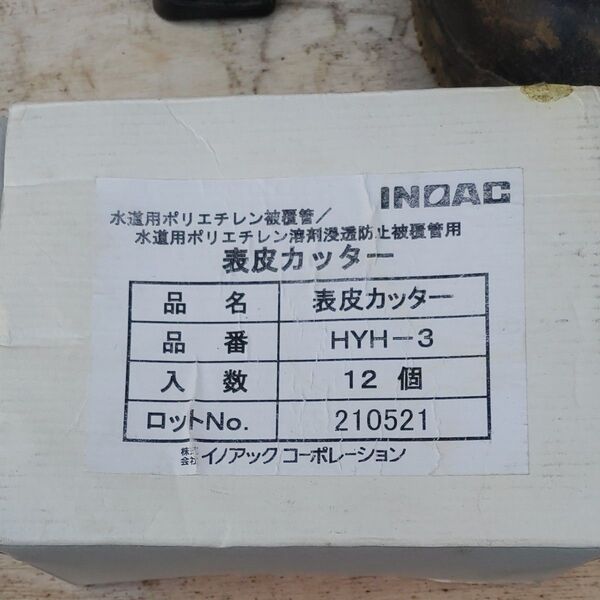 INOAC
水道用ポリエチレン被覆管／
水道用ポリエチレン溶剤浸透防止被覆管用
表皮カッター
品 名 表皮カッター
品 番 HYH-3
入 数 12 個
ロットNo. 210521
株式会社 イノアック コーポレーション